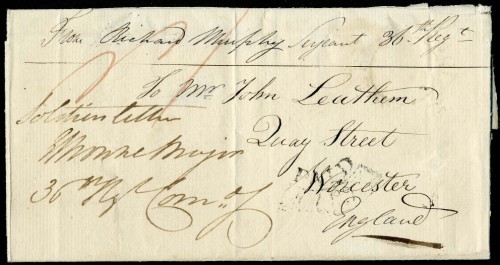 From Richard Murphy Serjeant 36th Regt
To Mr John Leathem
Quay Street
Worcester
England
Soldiers letter
Major
36th Regt Comg
PAID